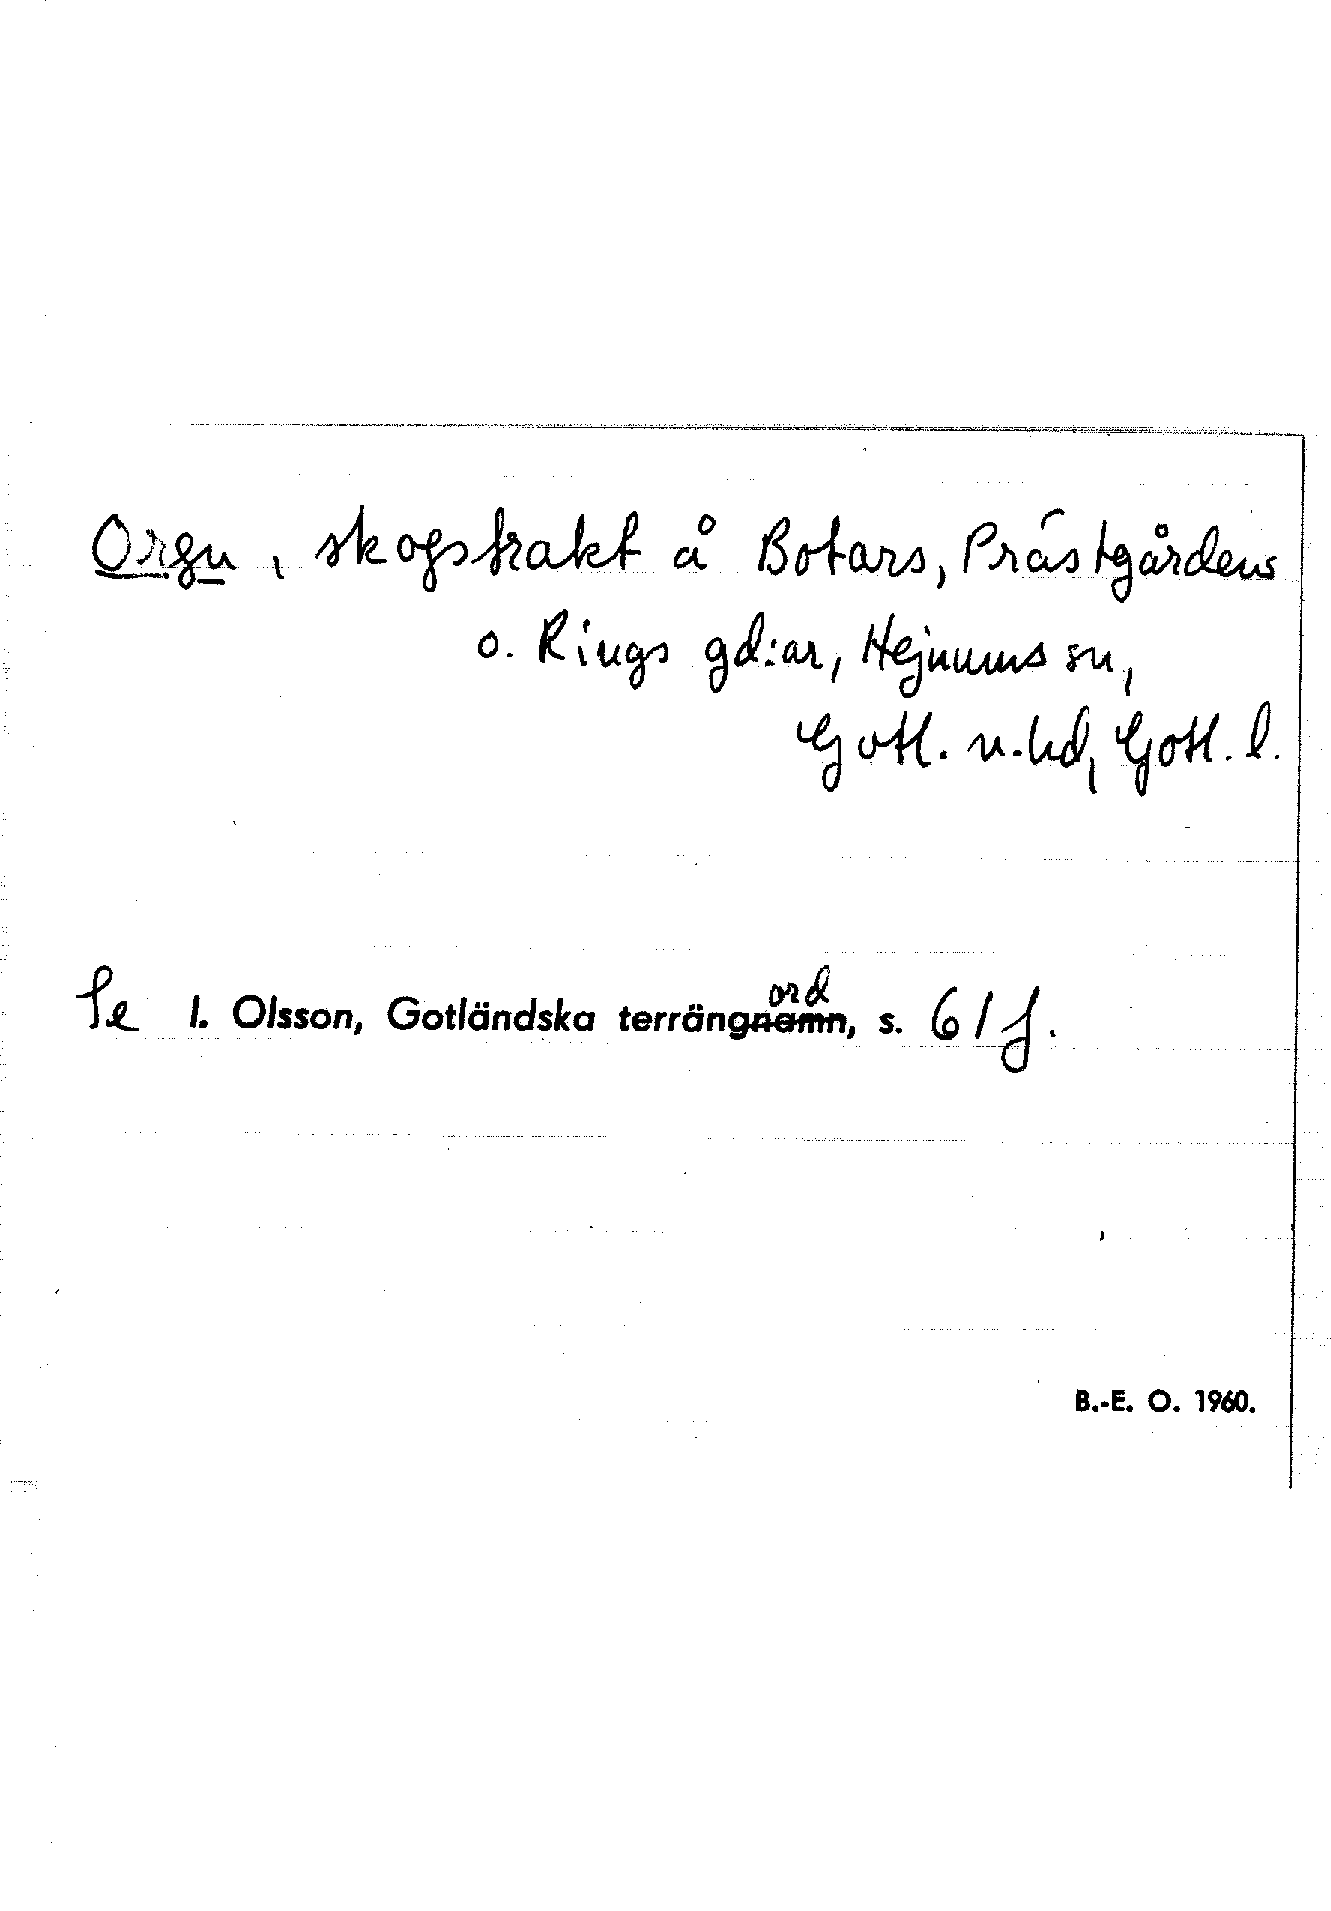 Orgu, skogstrakt å Botars, Prästgårdens
o. Rings gd:ar, Hejnums sn,
Gotl. n. hd, Gotl. l.
Se I. Olsson, Gotländska terrängnamn, s. 61 f.
ord
B.-E. O. 1960.